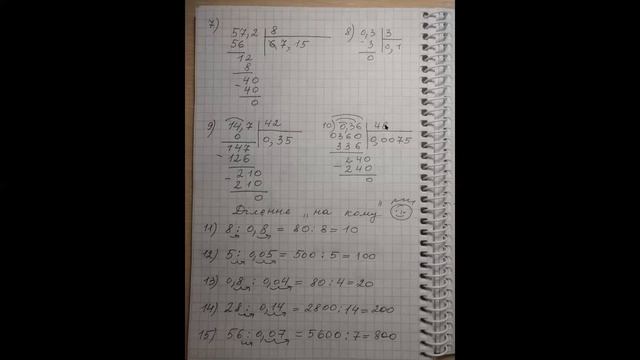 7) 57,2 | 8
56 | 7,15
12
8
- 40
40
0
8) 0,3 | 3
- 3 | 0,1
0
9) 14,7 | 42
0 | 0,35
147
- 126
- 210
210
0
10) 0,36 | 48
0360 | 0,0075
336
- 240
240
0
Ділення „на кому"
11) 8 : 0,8 = 80 : 8 = 10
12) 5 : 0,05 = 500 : 5 = 100
13) 0,8 : 0,04 = 80 : 4 = 20
14) 28 : 0,14 = 2800 : 14 = 200
15) 56 : 0,07 = 5600 : 7 = 800